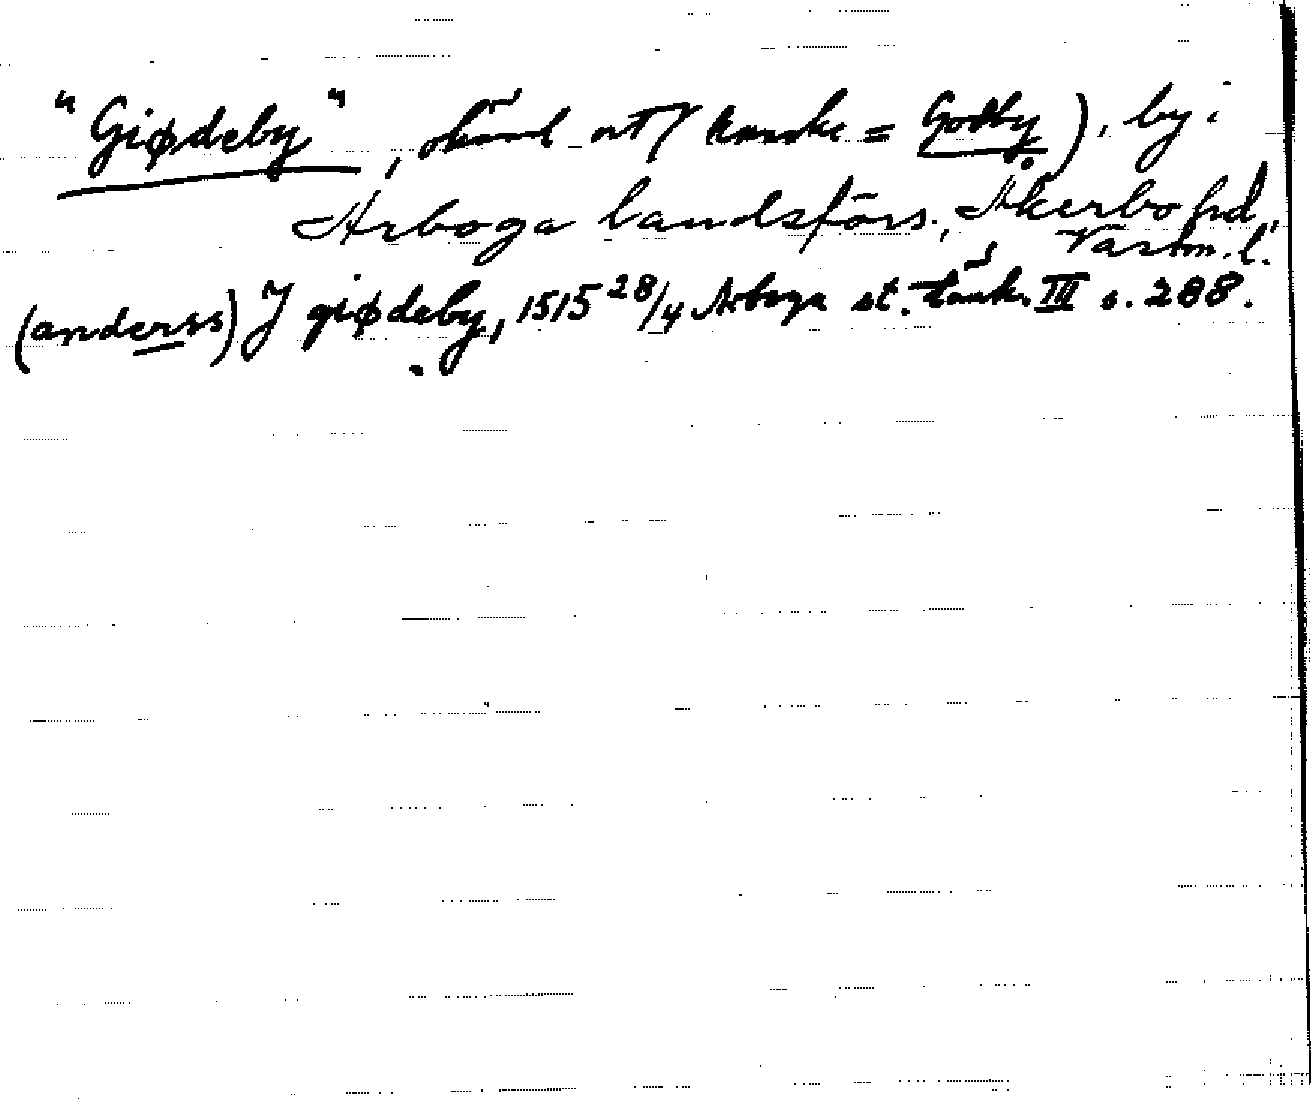 "Giødeby", okänd ort (kanske = Godby), by i
Arboga landsförs., Åkerbo hd,
Västm. l.
(anderss) J giødeby, 1515 28/4 Arboga st. tänkeb. III s. 288.